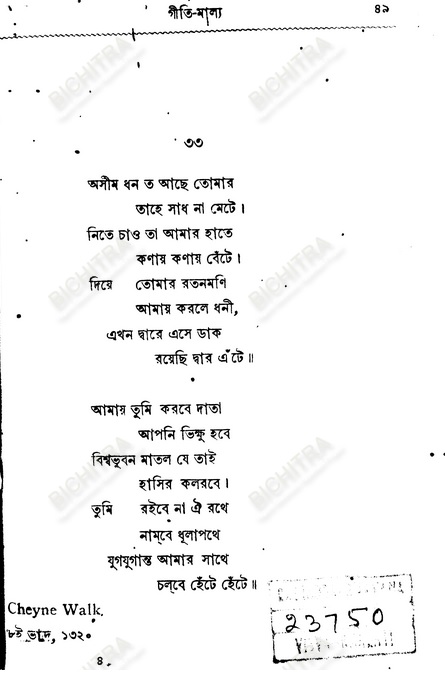 গীতি-মাল্য ৪৯
৩৩
অসীম ধন ত আছে তোমার
তাহে সাধ না মেটে।
নিতে চাও তা আমার হাতে
কণায় কণায় বেঁটে।
দিয়ে তোমার রতনমণি
আমায় করলে ধনী,
এখন দ্বারে এসে ডাক
রয়েছি দ্বার এঁটে॥
আমায় তুমি করবে দাতা
আপনি ভিক্ষু হবে
বিশ্বভুবন মাতল যে তাই
হাসির কলরবে।
তুমি রইবে না ঐ রথে
নাম্‌বে ধূলাপথে
যুগযুগান্ত আমার সাথে
চল্‌বে হেঁটে হেঁটে॥
Cheyne Walk.
৮ই ভাদ্র, ১৩২০
23750
৪
BICHITRA
BICHITRA
BICHITRA
BICHITRA
BICHITRA
BICHITRA
BICHITRA
BICHITRA